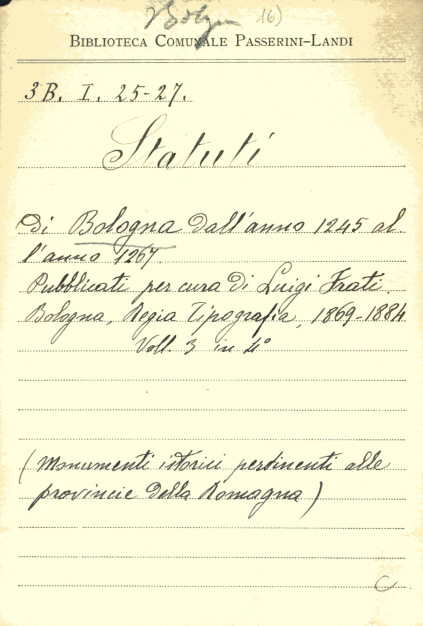 Bologn 16)
BIBLIOTECA COMUNALE PASSERINI-LANDI
3B. I. 25-27.
Statuti
Di Bologna dall'anno 1245 al
l'anno 1267.
Pubblicati per cura di Luigi Frati.
Bologna, Regia Tipografia, 1869-1884
Voll. 3 in 4°
(Monumenti istorici pertinenti alle
provincie della Romagna)
C